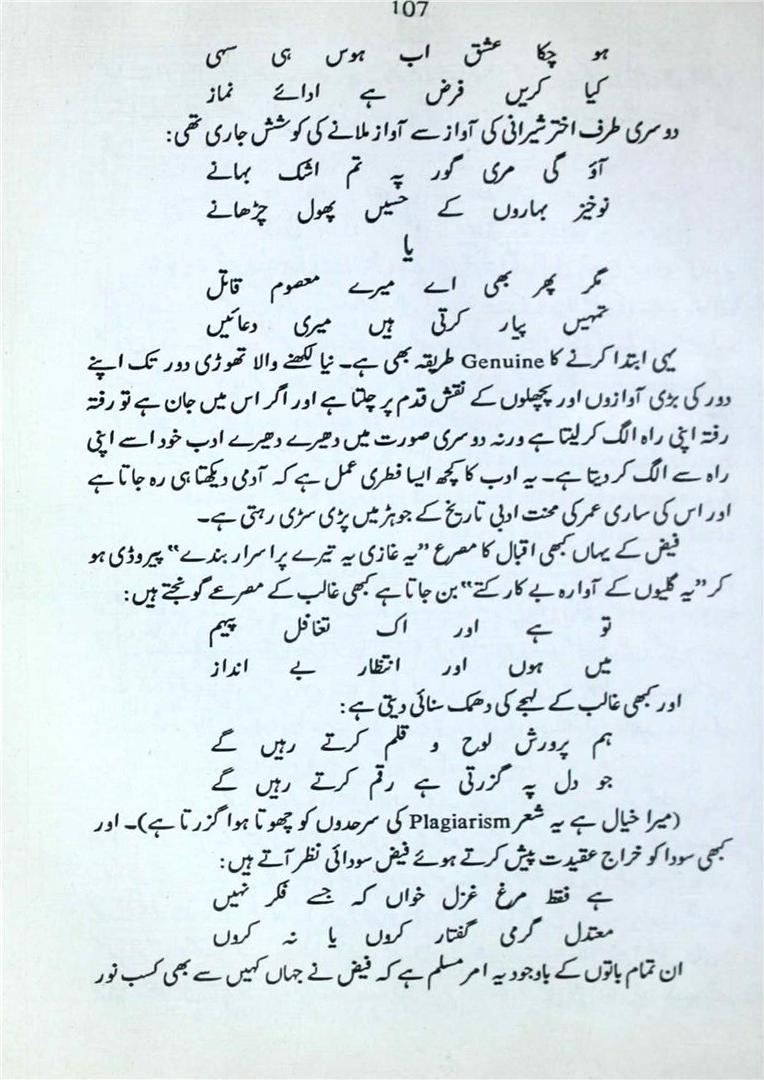 107
ہو چکا عشق اب ہوس ہی سہی
کیا کریں فرض ہے ادائے نماز
دوسری طرف اختر شیرانی کی آواز سے آواز ملانے کی کوشش جاری تھی:
آؤ گی مری گور پہ تم اشک بہانے
نوخیز بہاروں کے حسیں پھول چڑھانے
یا
مگر پھر بھی اے میرے معصوم قاتل
تمہیں پیار کرتی ہیں میری دعائیں
یہی ابتدا کرنے کا Genuine طریقہ بھی ہے۔ نیا لکھنے والا تھوڑی دور تک اپنے
دور کی بڑی آوازوں اور پچھلوں کے نقش قدم پر چلتا ہے اور اگر اس میں جان ہے تو رفتہ
رفتہ اپنی راہ الگ کر لیتا ہے ورنہ دوسری صورت میں دھیرے دھیرے ادب خود اسے اپنی
راہ سے الگ کر دیتا ہے۔ یہ ادب کا کچھ ایسا فطری عمل ہے کہ آدمی دیکھتا ہی رہ جاتا ہے
اور اس کی ساری عمر کی محنت ادبی تاریخ کے جوہڑ میں پڑی سڑی رہتی ہے۔
فیض کے یہاں کبھی اقبال کا مصرع ”یہ غازی یہ تیرے پر اسرار بندے“ پیروڈی ہو
کر ”یہ گلیوں کے آوارہ بے کار کتے“ بن جاتا ہے کبھی غالب کے مصرعے گونجتے ہیں:
تو ہے اور اک تغافل پیہم
میں ہوں اور انتظار بے انداز
اور کبھی غالب کے لہجے کی دھمک سنائی دیتی ہے:
ہم پرورش لوح و قلم کرتے رہیں گے
جو دل پہ گزرتی ہے رقم کرتے رہیں گے
(میرا خیال ہے یہ شعر Plagiarism کی سرحدوں کو چھوتا ہوا گزرتا ہے)۔ اور
کبھی سودا کو خراج عقیدت پیش کرتے ہوئے فیض سودائی نظر آتے ہیں:
ہے فقط مرغ غزل خواں کہ جسے فکر نہیں
معتدل گرمی گفتار کروں یا نہ کروں
ان تمام باتوں کے باوجود یہ امر مسلم ہے کہ فیض نے جہاں کہیں سے بھی کسب نور